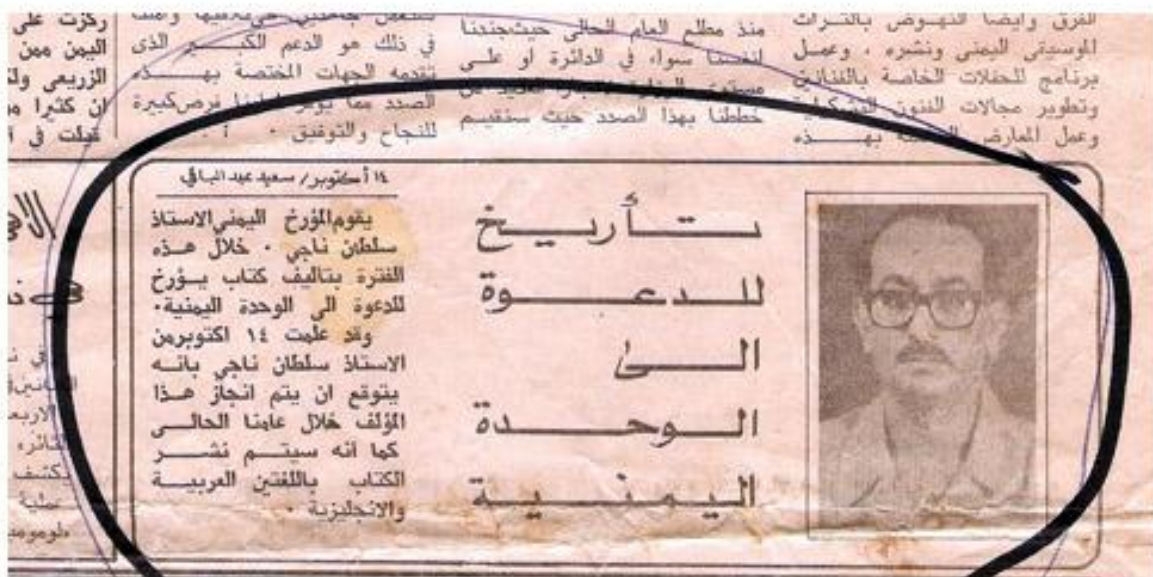 الفرق وايضا النهوض بالتراث
الموسيقي اليمني ونشره ، وعمل
برنامج للحفلات الخاصة بالفنانين
وتطوير مجالات الفنون التشكيلية
وعمل المعارض بهـــذه
منذ مطلع العام الحالى حيث جندنا
انفسنا سواء في الدائرة او على
خططنا بهذا الصدد حيث ستقيم
في ذلك هو الدعم الكبــير الذى
تقدمه الجهات المختصة بهـــذه
الصدد مما فرص كبيرة
للنجاح والتوفيق ٠
ركزت على
اليمن ممن
الزريعى
ان كثيرا
تـــأريـــخ
للـدعـــوة
الـــى
الـوحــدة
اليـمنـيـة
١٤ أكتوبر / سعيد عبد الباقي
يقوم المؤرخ اليمني الاستاذ
سلطان ناجي ٠ خلال هــذه
الفترة بتاليف كتاب يــؤرخ
للدعوة الى الوحدة اليمنية٠
وقد علمت ١٤ اكتوبر من
الاستاذ سلطان ناجي بانــه
يتوقع ان يتم انجاز هــذا
المؤلف خلال عامنا الحالــى
كما أنه سيتــم نشــر
الكتاب باللغتين العربيــة
والانجليزية ٠